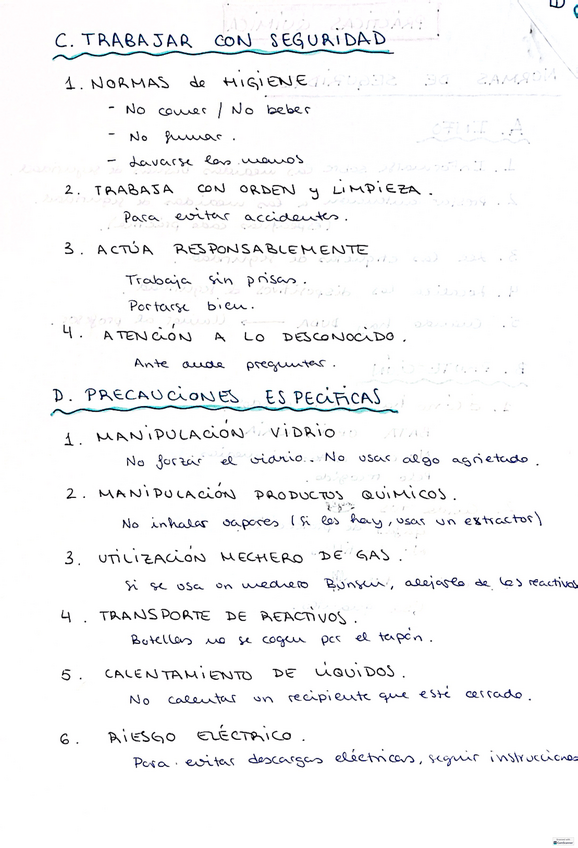 C. TRABAJAR CON SEGURIDAD
1. NORMAS de HIGIENE
- No comer / No beber
- No fumar.
- Lavarse las manos
2. TRABAJA CON ORDEN y LIMPIEZA.
Para evitar accidentes.
3. ACTÚA RESPONSABLEMENTE
Trabaja sin prisas.
Portarse bien.
4. ATENCIÓN A LO DESCONOCIDO.
Ante duda preguntar.
D. PRECAUCIONES ESPECÍFICAS
1. MANIPULACIÓN VIDRIO
No forzar el vidrio. No usar algo agrietado.
2. MANIPULACIÓN PRODUCTOS QUÍMICOS.
No inhalar vapores (Si los hay, usar un extractor)
3. UTILIZACIÓN MECHERO DE GAS.
Si se usa un mechero Bunsen, alejarlo de los reactivos
4. TRANSPORTE DE REACTIVOS.
Botellas no se cogen por el tapón.
5. CALENTAMIENTO DE LÍQUIDOS.
No calentar un recipiente que esté cerrado.
6. RIESGO ELÉCTRICO.
Para evitar descargas eléctricas, seguir instrucciones